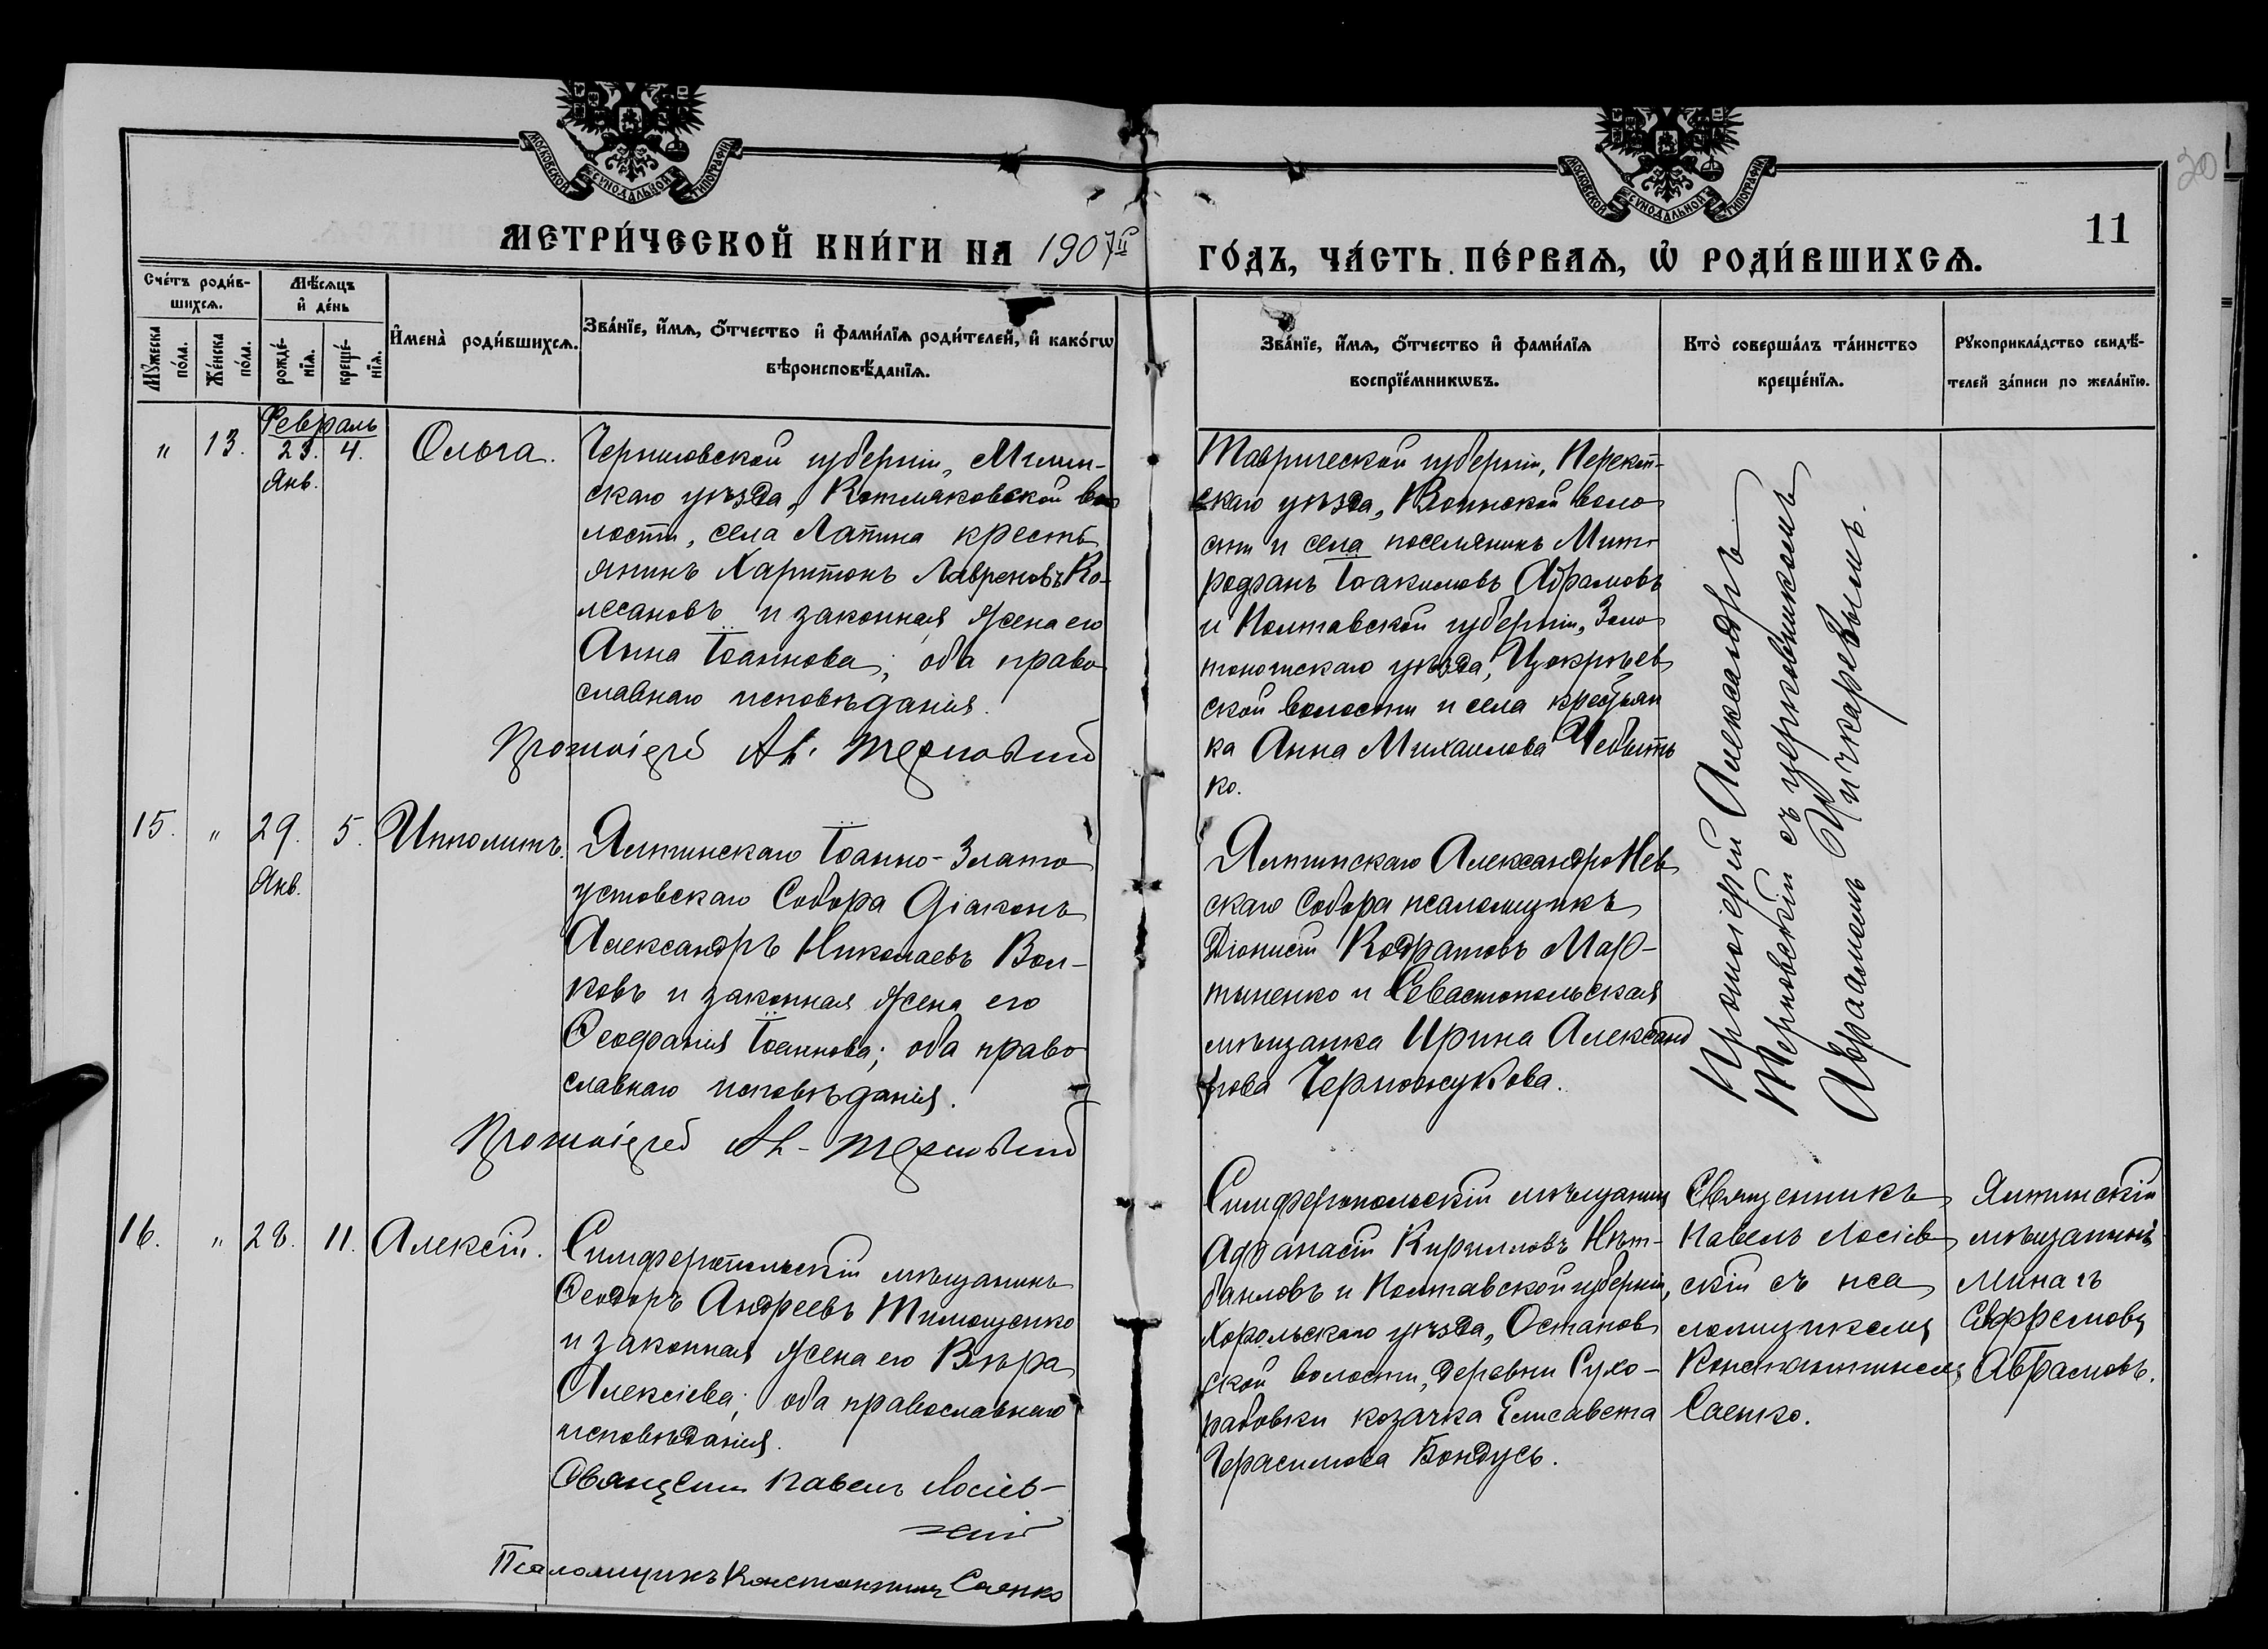 МОСКОВСКОЙ СѴНОДАЛЬНОЙ ТИПОГРАФІИ
МОСКОВСКОЙ СѴНОДАЛЬНОЙ ТИПОГРАФІИ
20
11
МЕТРИ́ЧЕСКОЙ КНИ́ГИ НА 1907й
ГО́ДЪ, ЧА́СТЬ ПЕ́РВАѦ, Ѡ҆ РОДИ́ВШИХСѦ.
Сче́тъ роди́в-
шихсѧ.
Мꙋ́жеска
по́ла.
Же́нска
по́ла.
Мѣ́сѧцъ
и҆ де́нь
рожде́-
нїѧ.
креще́-
нїѧ.
И҆мена̀ роди́вшихсѧ.
Зва́нїе, и҆́мѧ, ѻ҆́тчество и҆ фами́лїѧ роди́телей, и҆ како́гѡ
вѣроисповѣ́данїѧ.
Зва́нїе, и҆́мѧ, ѻ҆́тчество и҆ фами́лїѧ
воспрїе́мникѡвъ.
Кто̀ соверша́лъ та́инство
креще́нїѧ.
Рꙋкоприкла́дство свидѣ́-
телей за́писи по жела́нїю.
Февраль
" 13. 23. 4. Ольга.
Янв.
Черниговской губерніи, Мглин-
скаго уѣзда, Котляковской во
лости, села Лапина кресть
янинъ Харитонъ Лавреновъ Ко-
лесановъ и законная жена его
Анна Іоаннова; оба право
славнаго исповѣданія.
Протоіерей Ал. Терновскій
Таврической губерніи, Перекоп-
скаго уѣзда, Воинской воло
сти и села поселянинъ Мит-
рофанъ Іоакимовъ Абрамовъ
и Полтавской губерніи, Золо
тоношскаго уѣзда, Ирклѣев
ской волости и села крестьян
ка Анна Михаилова
ко.
Протоіерей Александръ
Терновскій съ церковникомъ
Авраамомъ Пичкаревымъ.
15. " 29. 5. Ипполитъ.
Янв.
Ялтинскаго Іоанно-Злато
устовскаго Собора діаконъ
Александръ Николаевъ Вол-
ковъ и законная жена его
Ѳеофанія Іоаннова; оба право
славнаго исповѣданія.
Протоіерей Ал. Терновскій
Ялтинскаго Александро Нев
скаго Собора псаломщикъ
Діонисій Кодратовъ Мар-
тыненко и Севастопольская
мѣщанка Ирина Александ
рова Черножукова.
16. " 28. 11. Алексій.
Симферопольскій мѣщанинъ
Ѳеодоръ Андреевъ Тимощенко
и законная жена его Вѣра
Алексіева; оба православнаго
исповѣданія.
Священ. Павелъ Лосіев-
скій
Псаломщикъ Константинъ Саенко
Симферопольскій мѣщанинъ
Афанасій Кирилловъ
и Полтавской губерніи,
Хорольскаго уѣзда, Остапов
ской волости, деревни Сухо-
рабовки козачка Елисавета
Герасимова Бондусь.
Священникъ
Павелъ Лосіев
скій съ пса
ломщикомъ
Константиномъ
Саенко.
Ялтинскій
мѣщанинъ
Мина
Ефремовъ
Абрамовъ.